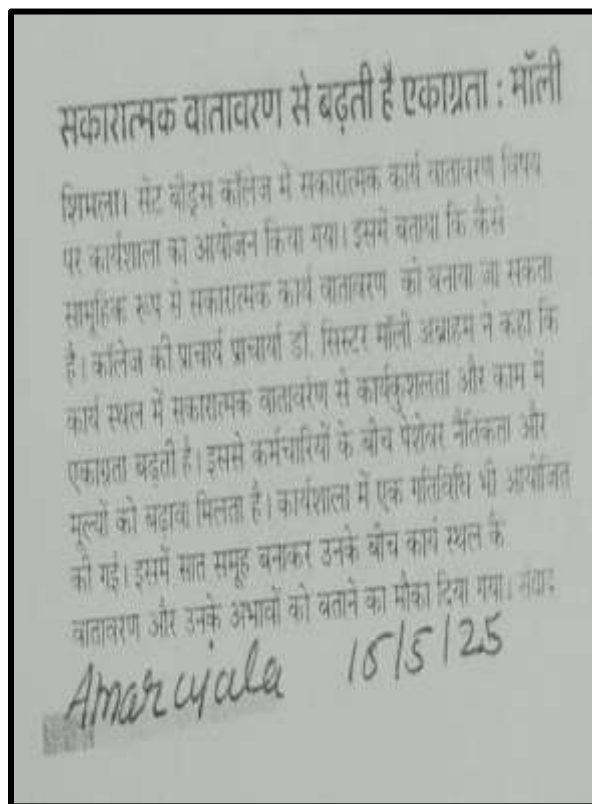 सकारात्मक वातावरण से बढ़ती है एकाग्रता : मॉली
शिमला। सेंट बीड्स कॉलेज में सकारात्मक कार्य वातावरण विषय
पर कार्यशाला का आयोजन किया गया। इसमें बताया कि कैसे
सामूहिक रूप से सकारात्मक कार्य वातावरण को बनाया जा सकता
है। कॉलेज की प्राचार्य प्राचार्या डॉ. सिस्टर मॉली अब्राहम ने कहा कि
कार्य स्थल में सकारात्मक वातावरण से कार्यकुशलता और काम में
एकाग्रता बढ़ती है। इससे कर्मचारियों के बीच पेशेवर नैतिकता और
मूल्यों को बढ़ावा मिलता है। कार्यशाला में एक गतिविधि भी आयोजित
की गई। इसमें सात समूह बनाकर उनके बीच कार्य स्थल के
वातावरण और उनके अभावों को बताने का मौका दिया गया। संवाद
Amar ujala 15/5/25